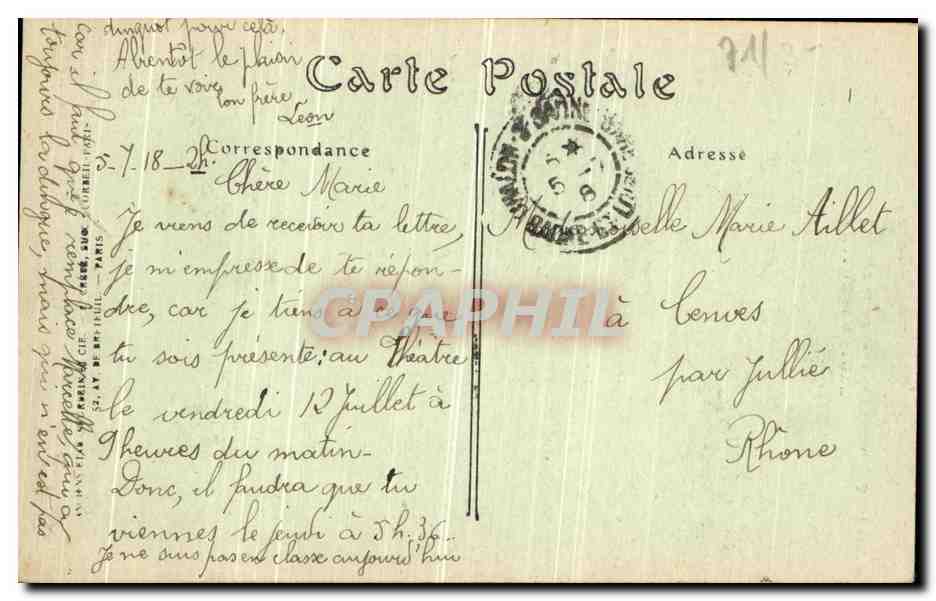 Carte Postale
Correspondance
Adresse
71
5-7-18-2h.
Chère Marie
Je viens de recevoir ta lettre,
je m'empresse de te répon-
dre, car je tiens à ce que
tu sois présente au Théâtre
le vendredi 12 Juillet à
9 heures du matin-
Donc, il faudra que tu
viennes le jeudi à 5h.36.
Je ne suis pas en classe aujourd'hui
car il faut que je remplace Marcelle, qui a
toujours la dingue, mais qui n'en est pas
dinguot pour cela.
A bientôt le plaisir
de te voir
ton frère
Léon
Marie Aillet
à Cenves
par Jullié
Rhône
52, AV. DE BRETEUIL — PARIS
CPAPHIL